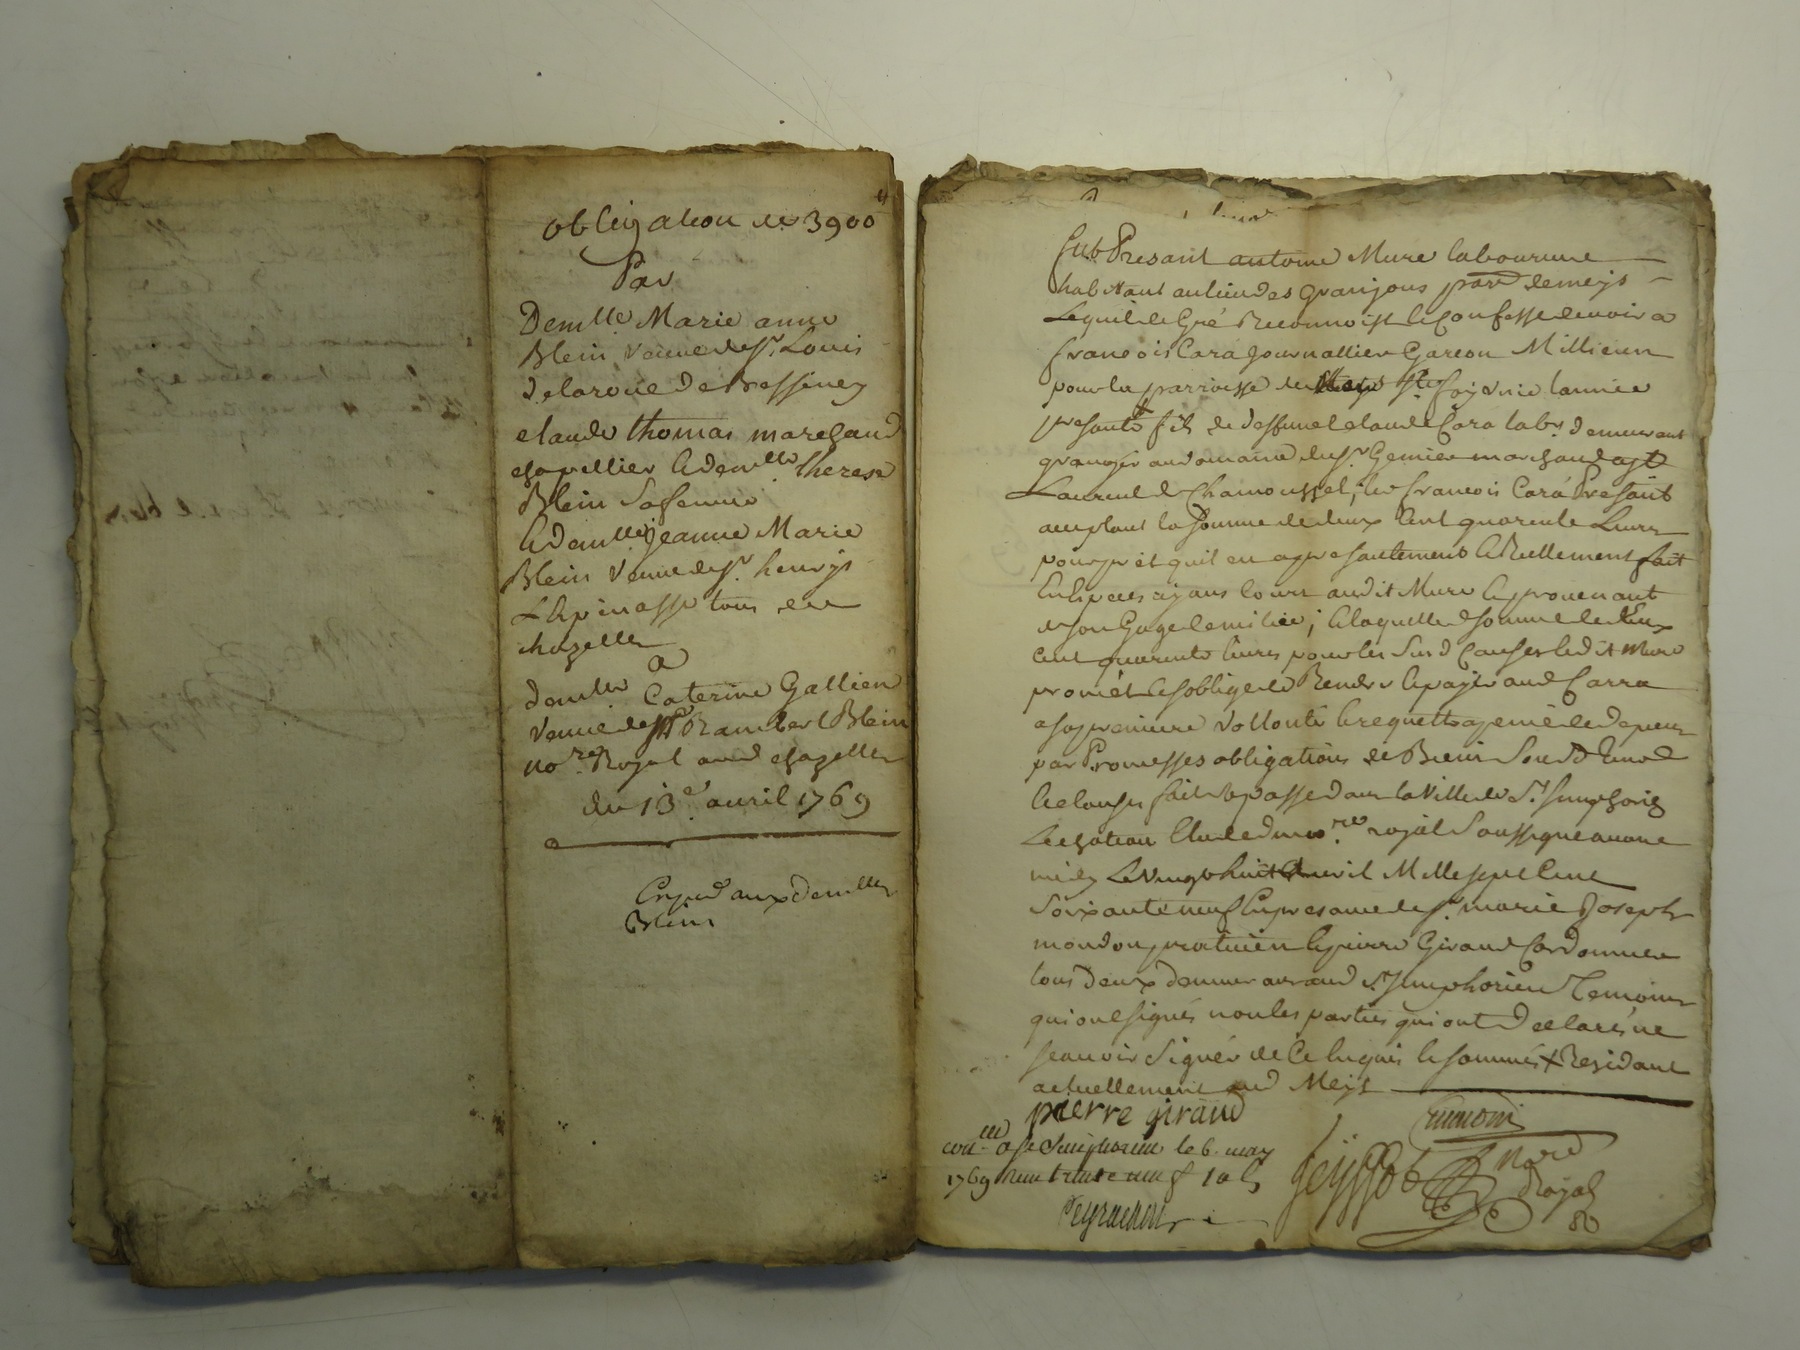 obligation de 3900 ll
Par
Demlle Marie anne
Blein veuve de sr. Louis
delaroue de Bessiney
claude thomas marchand
chapellier & demlle therese
Blein sa femme
& demlle jeanne Marie
Blein veuve de sr. henrÿs
Lespinasse tous de
chazelle
a
demlle Caterine Gallien
veuve de Sr Rambert Blein
nore. Royal aud chazelle
du 13e. avril 1769
Exped aux demlles
Blein
fut Presant antoine Mure laboureur
habitant au lieu des granjons parr. de meÿs
Lequel de Gré Reconnoist & Confesse devoir a
francois Cara journallier Garcon Millicien
pour la parroisse de Ste foÿ de lannée
presante fils de deffunt claude Cara labr. demeurant
granger au domaine du sr. Genier marchand a st
Laurent de Chamousset; led francois Cara Present
acceptant la somme de deux Cent quarente Livres
pour prêt quil en a presantement & Reellement fait
En Especes aÿans cours audit Mure & provenant
de son Gage de milice; & laquelle somme de deux
cent quarente livres pour les Susd Causes ledit Mure
promêt & soblige de Rendre & paÿer aud Carra
a sa premiere vollonté & requette a peine de depens
par Promesses obligations de Biens Soub
& clauses fait & passé dans la Ville de St. Simphorien
Le chateau Etude du nore. royal Soussigné avant
midy Le vingt huit avril Mil sept Cent
Soixante neuf En presance de sr. marie Joseph
mondon praticien & pierre Giraud Cordonnier
tous deux demeurant aud St. Simphorien Temoins
qui ont signés non les parties qui ont declarés ne
scavoir signér de Ce Enquis & sommés X Residant
actuellement aud Meÿs
pierre giraud
mondon
conlle a st Simphorien le 6. may
1769 Recu trente neuf sols
Peyrachon
Geÿssot
Nore
Royal